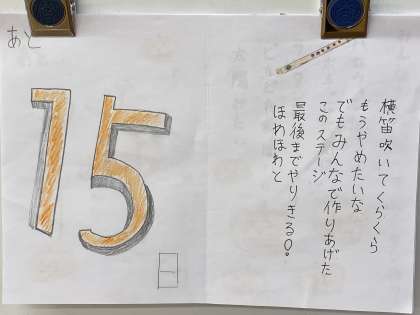 あと
15
日
横笛吹いてくらくら
もうやめたいな
でもみんなで作りあげた
このステージ
最後までやりきる!
ほめほわと